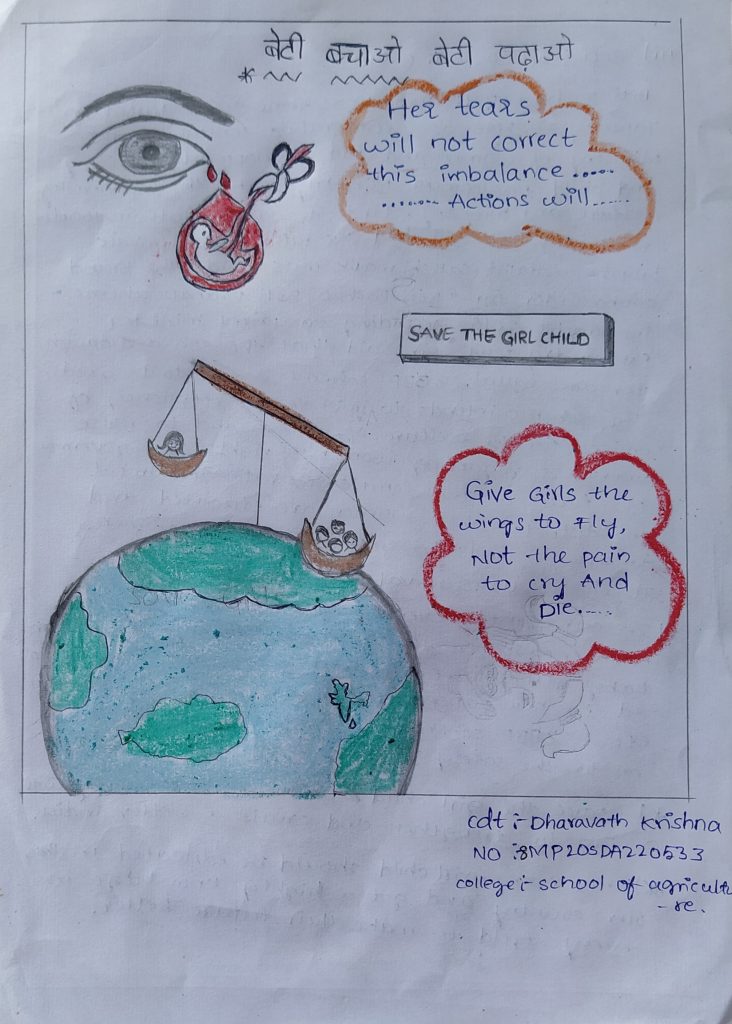 बेटी बचाओ बेटी पढ़ाओ
Her tears
will not correct
this imbalance .....
....... Actions will......
SAVE THE GIRL CHILD
Give Girls the
wings to Fly,
Not the pain
to cry And
Die.....
cdt :- Dharavath Krishna
NO :8MP20SDA220533
college :- school of agricultu
-re.